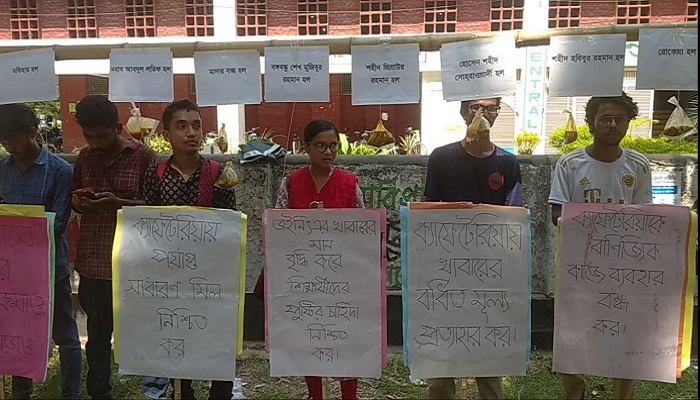 মন্নুজান হল
নবাব আবদুল লতিফ হল
মাদার বক্স হল
বঙ্গবন্ধু শেখ মুজিবুর
রহমান হল
শহীদ জিয়াউর
রহমান হল
হোসেন শহীদ
সোহ্‌রাওয়ার্দী হল
শহীদ হবিবুর রহমান হল
রোকেয়া হল
CENTRAL
ক্যাফেটেরিয়ায়
পর্যাপ্ত
সাধারণ মিল
নিশ্চিত
কর
ডাইনিংএর খাবারের
মান
বৃদ্ধি করে
শিক্ষার্থীদের
পুষ্টির চাহিদা
নিশ্চিত
কর।
ক্যাফেটেরিয়ায়
খাবারের
বর্ধিত মূল্য
প্রত্যাহার কর।
ক্যাফেটেরিয়াকে
বাণিজ্যিক
কাজে ব্যবহার
বন্ধ
কর।